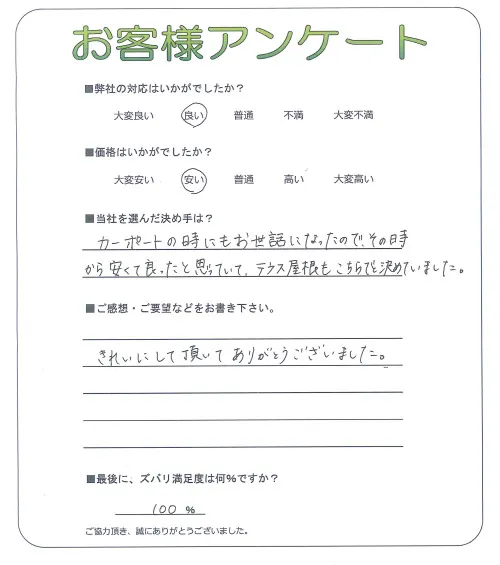 お客様アンケート
■弊社の対応はいかがでしたか?
大変良い 良い 普通 不満 大変不満
■価格はいかがでしたか?
大変安い 安い 普通 高い 大変高い
■当社を選んだ決め手は?
カーポートの時にもお世話になったので、その時
から安くて良ったと思っていて、テラス屋根もこちらでと決めていました。
■ご感想・ご要望などをお書き下さい。
きれいにして頂いてありがとうございました。
■最後に、ズバリ満足度は何%ですか?
100 %
ご協力頂き、誠にありがとうございました。